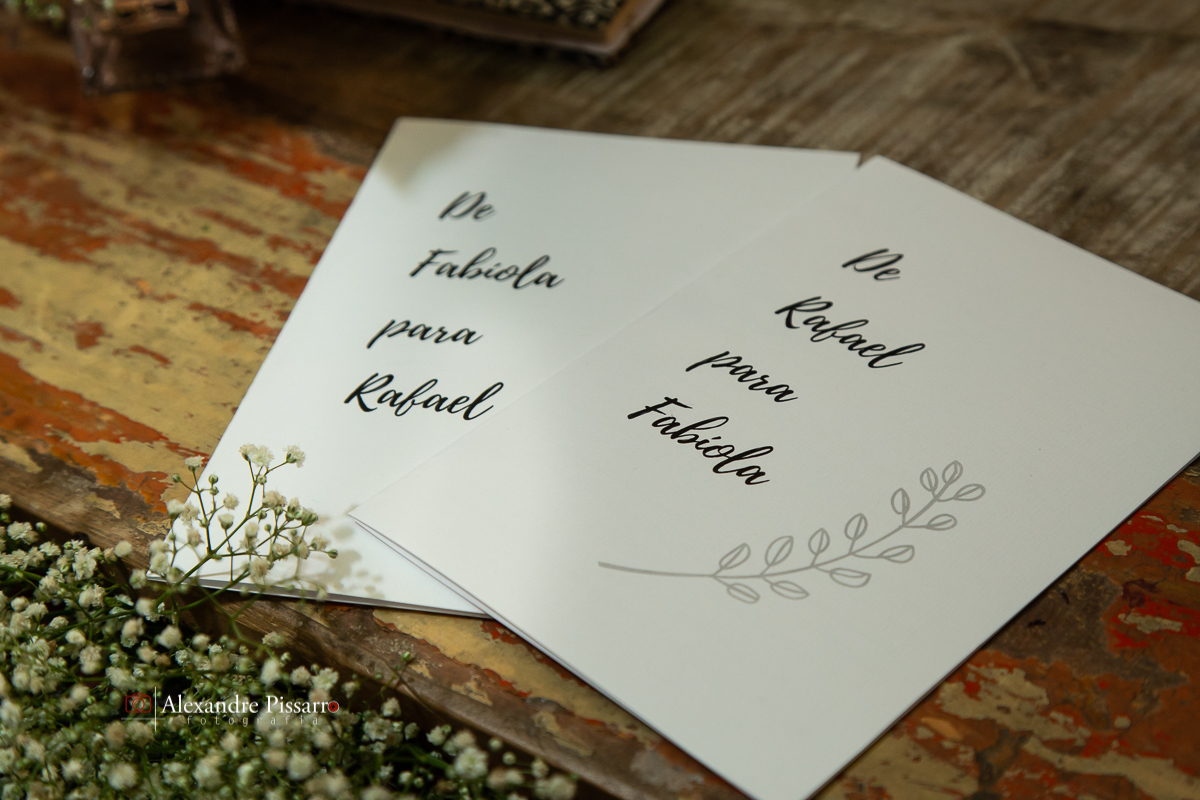 De
Fabíola
para
Rafael
De
Rafael
para
Fabíola
Alexandre Pissarro
fotografia